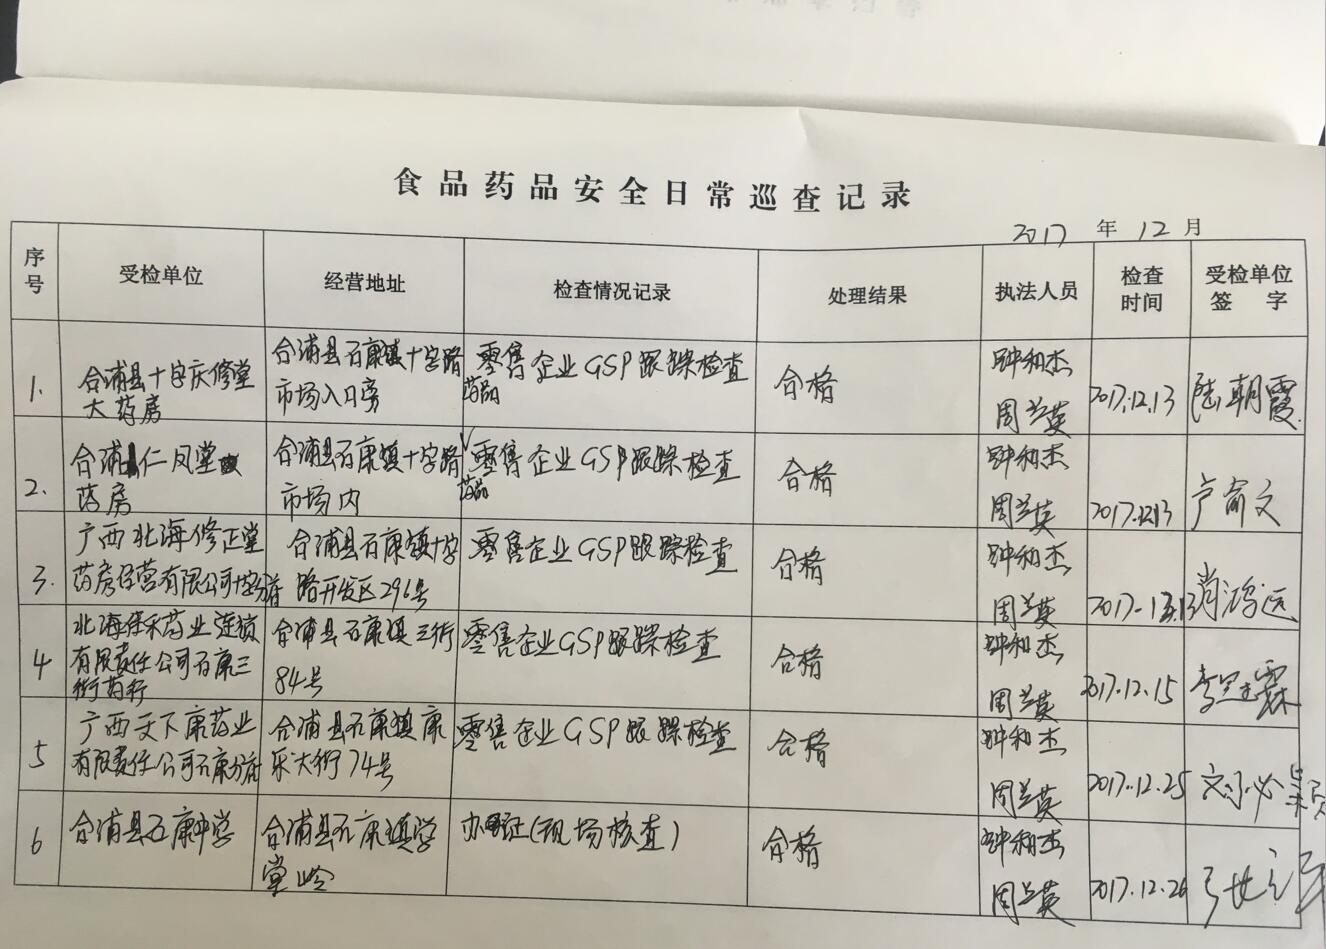 食品药品安全日常巡查记录
2017 年 12 月
序号 受检单位 经营地址 检查情况记录 处理结果 执法人员 检查时间 受检单位签字
1. 合浦县十字庆修堂 合浦县石康镇十字路 零售企业GSP跟踪检查 合格 钟和杰 2017.12.13 陆朝霞
大药房 市场入口旁 药品 周兰英
2. 合浦仁风堂 合浦县石康镇十字路 零售企业GSP跟踪检查 合格 钟和杰 2017.12.13 卢俞文
药房 市场内 药品 周兰英
3. 广西北海修正堂 合浦县石康镇十字 零售企业GSP跟踪检查 合格 钟和杰 2017.12.13 肖鸿远
药房经营有限公司十字分店 路开发区296号 周兰英
4 北海保禾药业连锁 合浦县石康镇三街 零售企业GSP跟踪检查 合格 钟和杰 2017.12.15
有限责任公司石康三 84号 周兰英
街药行
5 广西天下康药业 合浦县石康镇康 零售企业GSP跟踪检查 合格 钟和杰 2017.12.25
有限责任公司石康分店 乐大街74号 周兰英
6 合浦县石康中学 合浦县石康镇学 办证(现场核查) 合格 钟和杰 2017.12.26
堂岭 周兰英